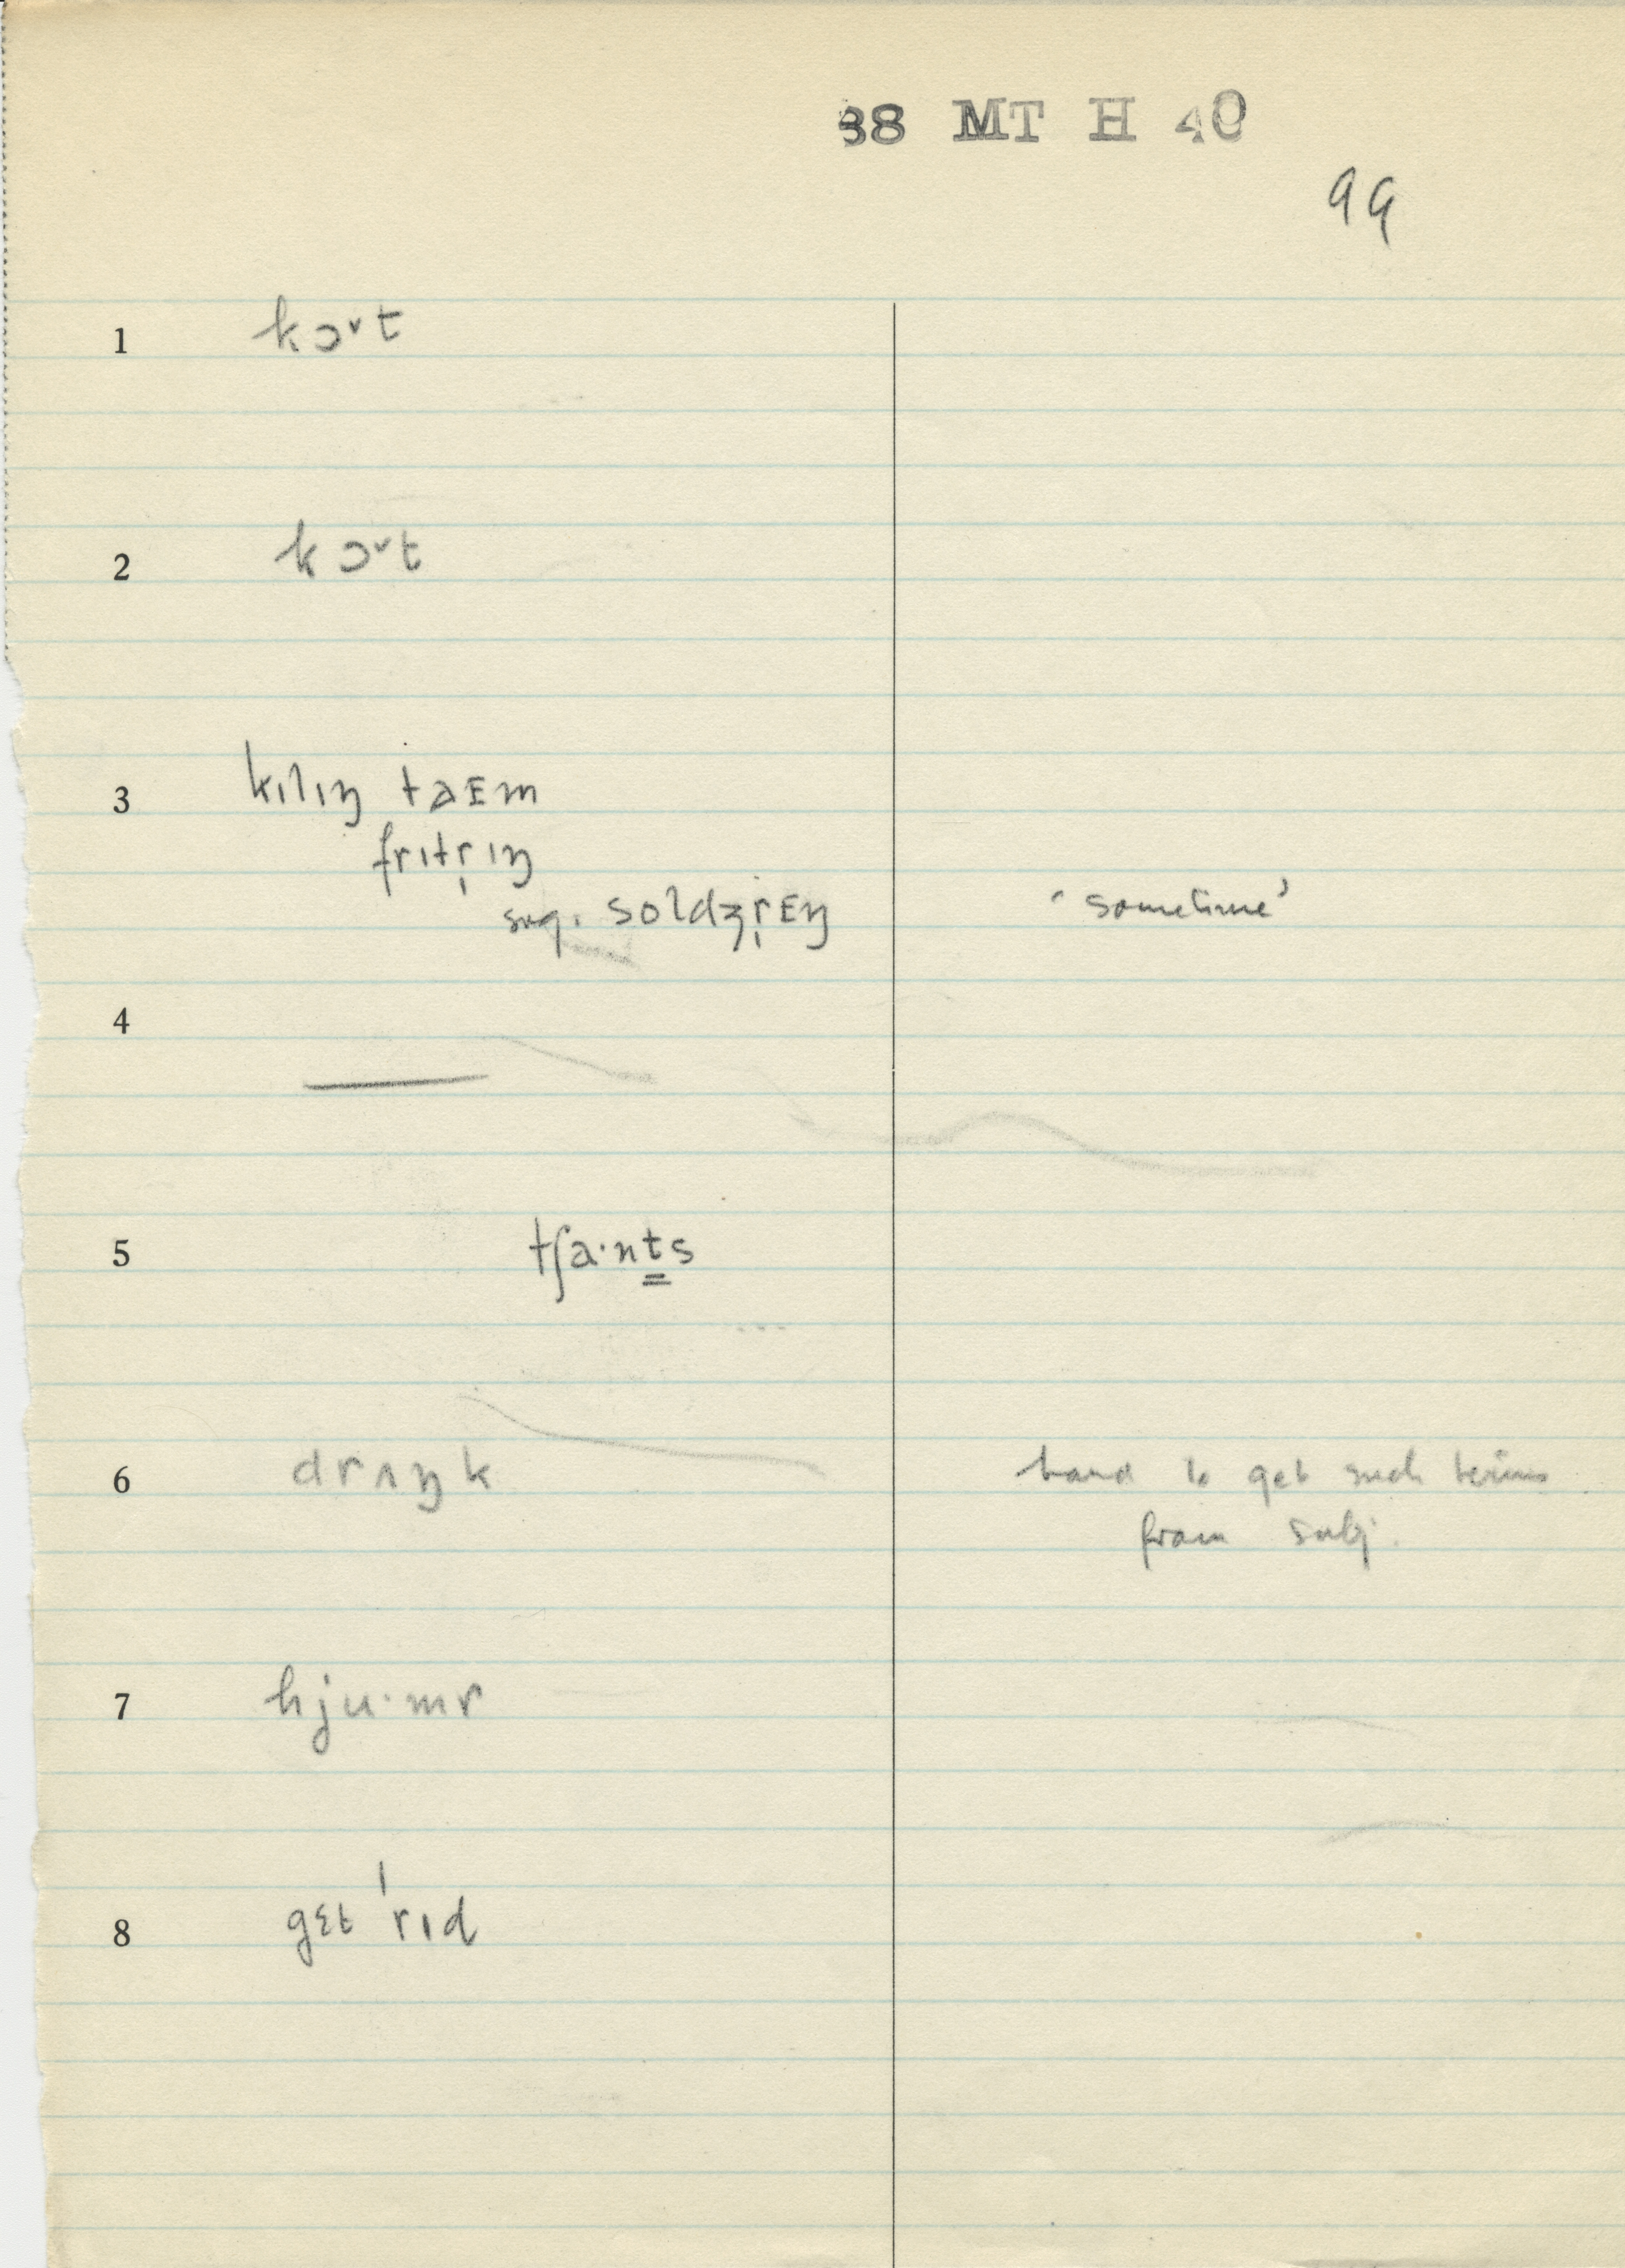 38 MT H 40
99
1 kɔᵛt
2 kɔᵛt
3 kɪlɪŋ taᴇm
frɪtr̩ɪŋ
sug. soldʒr̩ᴇŋ ‘sometime’
4 —
5 tʃa·nt̳s
6 drʌŋk hard to get such terms
from subj.
7 hju·mr
8 gɛt ˈrɪd